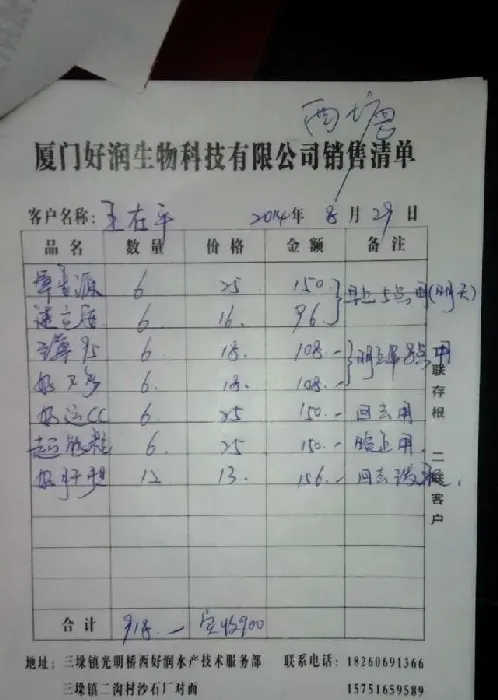 西塘
厦门好润生物科技有限公司销售清单
客户名称: 王在平 2014年 8月 29日
品名 数量 价格 金额 备注
6 25 150. 早上5点用(明天)
6 16. 96.
95 6 18. 108.- 用
6 18. 108.-
好运CC 6 25 150.- 回去用
6 25 150.- 晚上用.
12 13. 156.- 回去
合计 918.- 实收900
一联存根 二联客户
地址: 三垛镇光明桥西好润水产技术服务部 联系电话: 18260691366
三垛镇二沟村沙石厂对面 15751659589